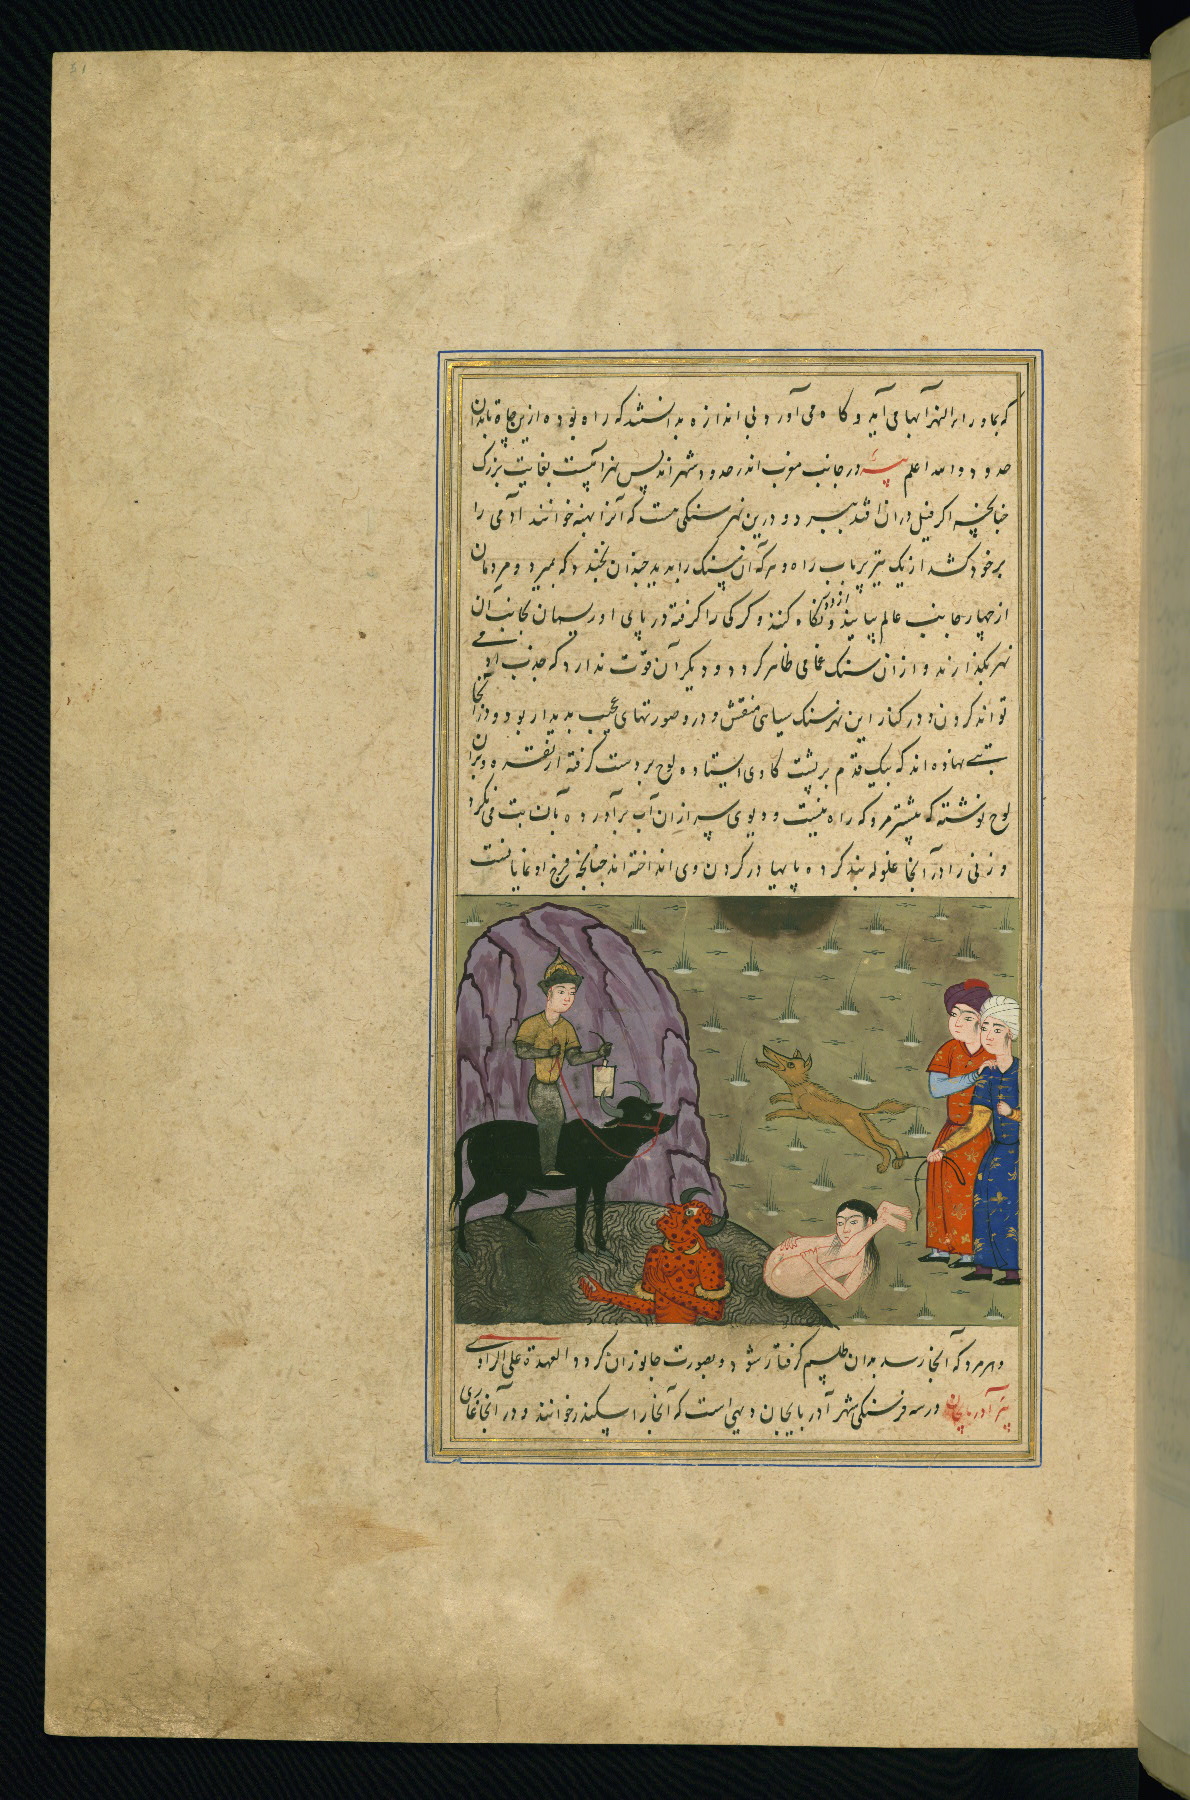 که بماوراء النهر آبها می آید و کاه می آورد بی اندازه بدانستند که راه بوده ازین چاه بدان
حدود والله اعلم در جانب مغرب اندر حدود شهر اندلس نهرآبیست بغایت بزرک
چنانچه اکر فیل دران افتد ببرد و درین نهر سنکی هست که آنرا بهته خوانند آدمی را
بر خود کشد از یک تیر پرتاب راه و هرکه آن سنک را بدید چندان بخندد که بمیرد و مردمان
از چهار جانب عالم بیایند و از دور نکاه کنند و کرکی را کرفته در پای او ریسمان بجانب آن
نهر بکذارند و از ان سنک ظاهر کردد و دیکر آن قوت ندارد که جذب آدمی
تواند کردن و در کنار این نهر سنک سیاهی منقش و درو صورتهای عجیب پدیدار بود و در آنجا
بتی نهاده اند که بیک قدم بر پشت کاوی ایستاده لوح بر دست کرفته از نقره و بران
لوح نوشته که پیشتر مرو که راه نیست و دیوی سر ازان آب برآورده بآن بت می نکرد
و زنی را در آنجا غلوله بند کرده پایها در کردن وی انداخته اند چنانچه فرج او نمایانست
و هر مرد که آنجا رسد بدان طلسم کرفتار شود و بصورت جانوران کردد العهدة علی الراوی
بئر آدربایجان در سه فرسنکی شهر آدربایجان دیهی است که آنجا را خوانند و در آنجا غاری
۵۱